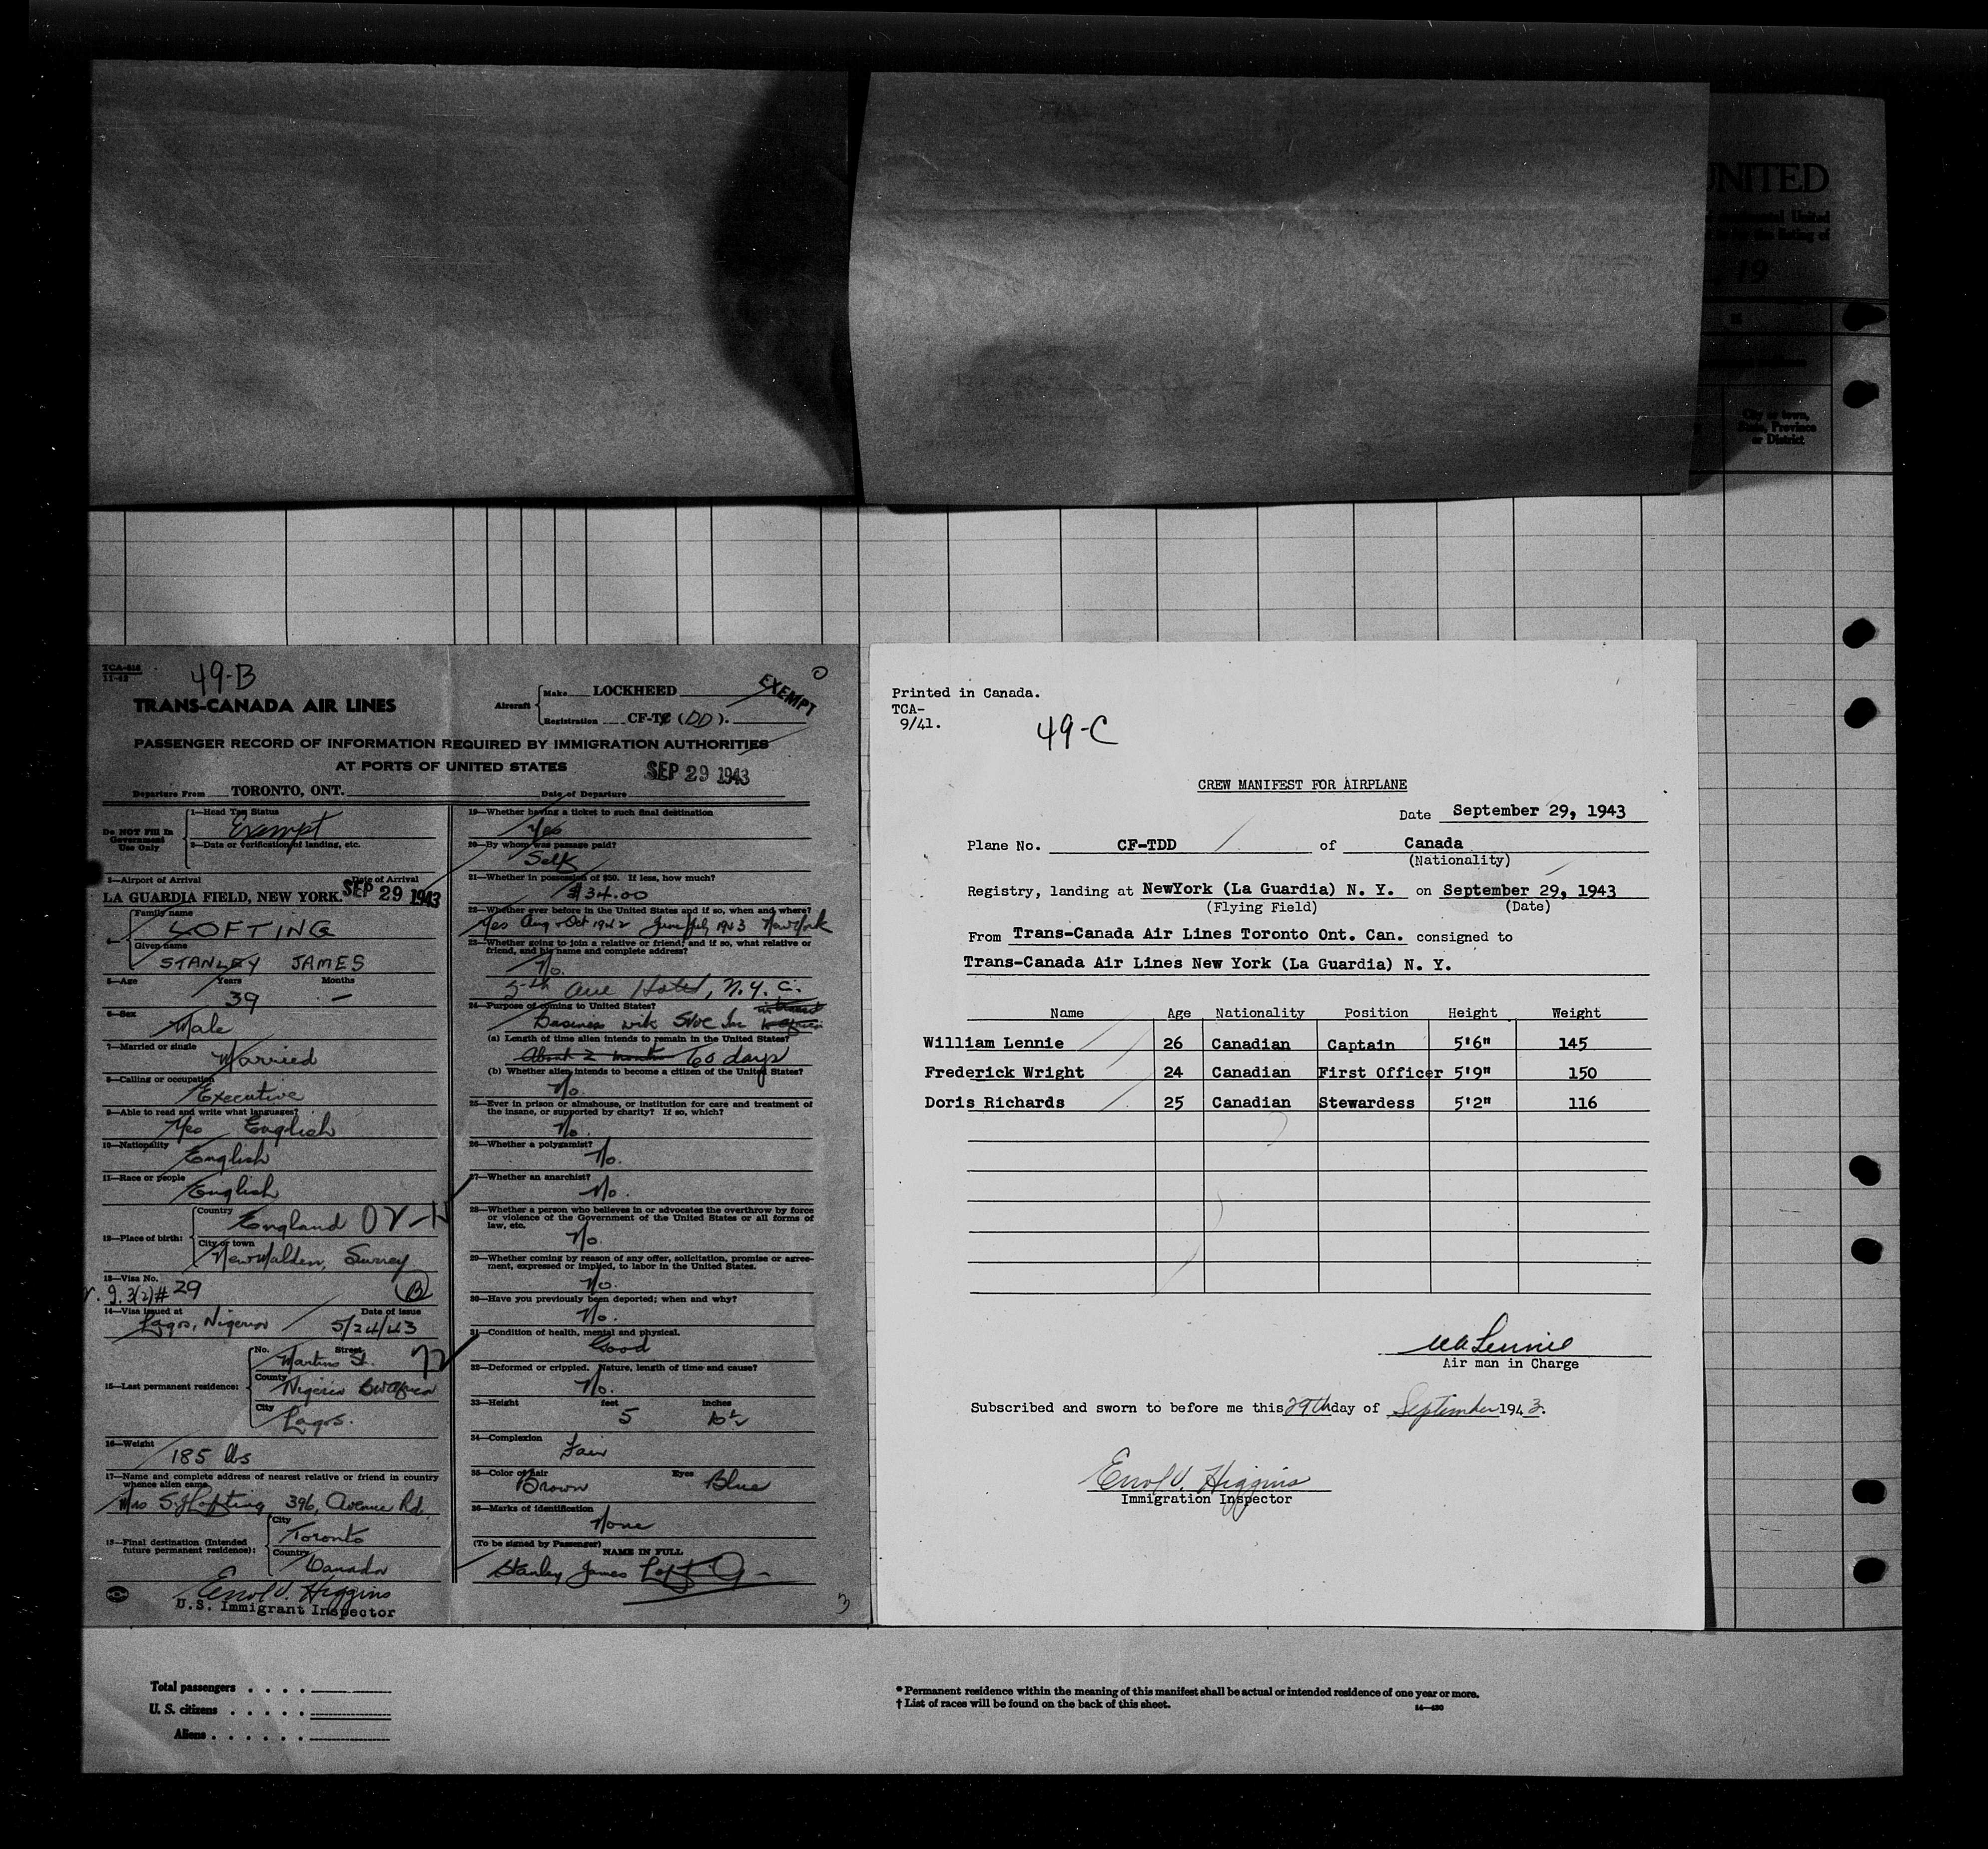 UNITED
19
City or town,
State, Province
or District
TCA-
11-42
49-B
TRANS-CANADA AIR LINES
Aircraft
Make LOCKHEED
Registration CF-T (DD).
EXEMPT
PASSENGER RECORD OF INFORMATION REQUIRED BY IMMIGRATION AUTHORITIES
AT PORTS OF UNITED STATES
SEP 29 1943
Departure From TORONTO, ONT. Date of Departure
Do NOT Fill In
Government
Use Only
1—Head Tax Status
Exempt
2—Date or verification of landing, etc.
3—Airport of Arrival Date of Arrival
LA GUARDIA FIELD, NEW YORK. SEP 29 1943
Family name
LOFTING
4—
Given name
STANLEY JAMES
5—Age Years Months
39 —
6—Sex
Male
7—Married or single
Married
8—Calling or occupation
Executive
9—Able to read and write what languages?
Yes English
10—Nationality
English
11—Race or people
English
12—Place of birth:
Country
England
City or town
New Malden, Surrey
13—Visa No.
3(2) # 29 B
14—Visa issued at Date of issue
Lagos, Nigeria 5/24/43
15—Last permanent residence:
No. Street
Martins St. 72
County
Nigeria BWAfrica
City
Lagos.
16—Weight
185 lbs
17—Name and complete address of nearest relative or friend in country
whence alien came.
Mrs S. J. Lofting 396, Avenue Rd.
18—Final destination (Intended
future permanent residence):
City
Toronto
Country
Canada
Errol V. Higgins
U.S. Immigrant Inspector
19—Whether having a ticket to such final destination
Yes
20—By whom was passage paid?
Self
21—Whether in possession of $50. If less, how much?
$34.00
22—Whether ever before in the United States and if so, when and where?
Yes Aug-Oct 1942 June/July 1943 New York
23—Whether going to join a relative or friend; and if so, what relative or
friend, and his name and complete address?
No.
5th Ave Hotel, N.Y.C.
24—Purpose of coming to United States?
Business with Inc
(a) Length of time alien intends to remain in the United States?
About 2 months 60 days
(b) Whether alien intends to become a citizen of the United States?
No.
25—Ever in prison or almshouse, or institution for care and treatment of
the insane, or supported by charity? If so, which?
No.
26—Whether a polygamist?
No.
27—Whether an anarchist?
No.
28—Whether a person who believes in or advocates the overthrow by force
or violence of the Government of the United States or all forms of
law, etc.
No.
29—Whether coming by reason of any offer, solicitation, promise or agree-
ment, expressed or implied, to labor in the United States.
No.
30—Have you previously been deported; when and why?
No.
31—Condition of health, mental and physical.
Good
32—Deformed or crippled. Nature, length of time and cause?
No.
33—Height feet inches
5 10½
34—Complexion
Fair
35—Color of hair Eyes
Brown Blue
36—Marks of identification
None
(To be signed by Passenger)
NAME IN FULL
Stanley James Lofting
3
Printed in Canada.
TCA-
9/41.
49-C
CREW MANIFEST FOR AIRPLANE
Date September 29, 1943
Plane No. CF-TDD of Canada
(Nationality)
Registry, landing at NewYork (La Guardia) N. Y. on September 29, 1943
(Flying Field) (Date)
From Trans-Canada Air Lines Toronto Ont. Can. consigned to
Trans-Canada Air Lines New York (La Guardia) N. Y.
Name Age Nationality Position Height Weight
William Lennie 26 Canadian Captain 5'6" 145
Frederick Wright 24 Canadian First Officer 5'9" 150
Doris Richards 25 Canadian Stewardess 5'2" 116
Lennie
Air man in Charge
Subscribed and sworn to before me this 29th day of September 1943.
Errol V. Higgins
Immigration Inspector
Total passengers
U. S. citizens
Aliens
* Permanent residence within the meaning of this manifest shall be actual or intended residence of one year or more.
† List of races will be found on the back of this sheet.